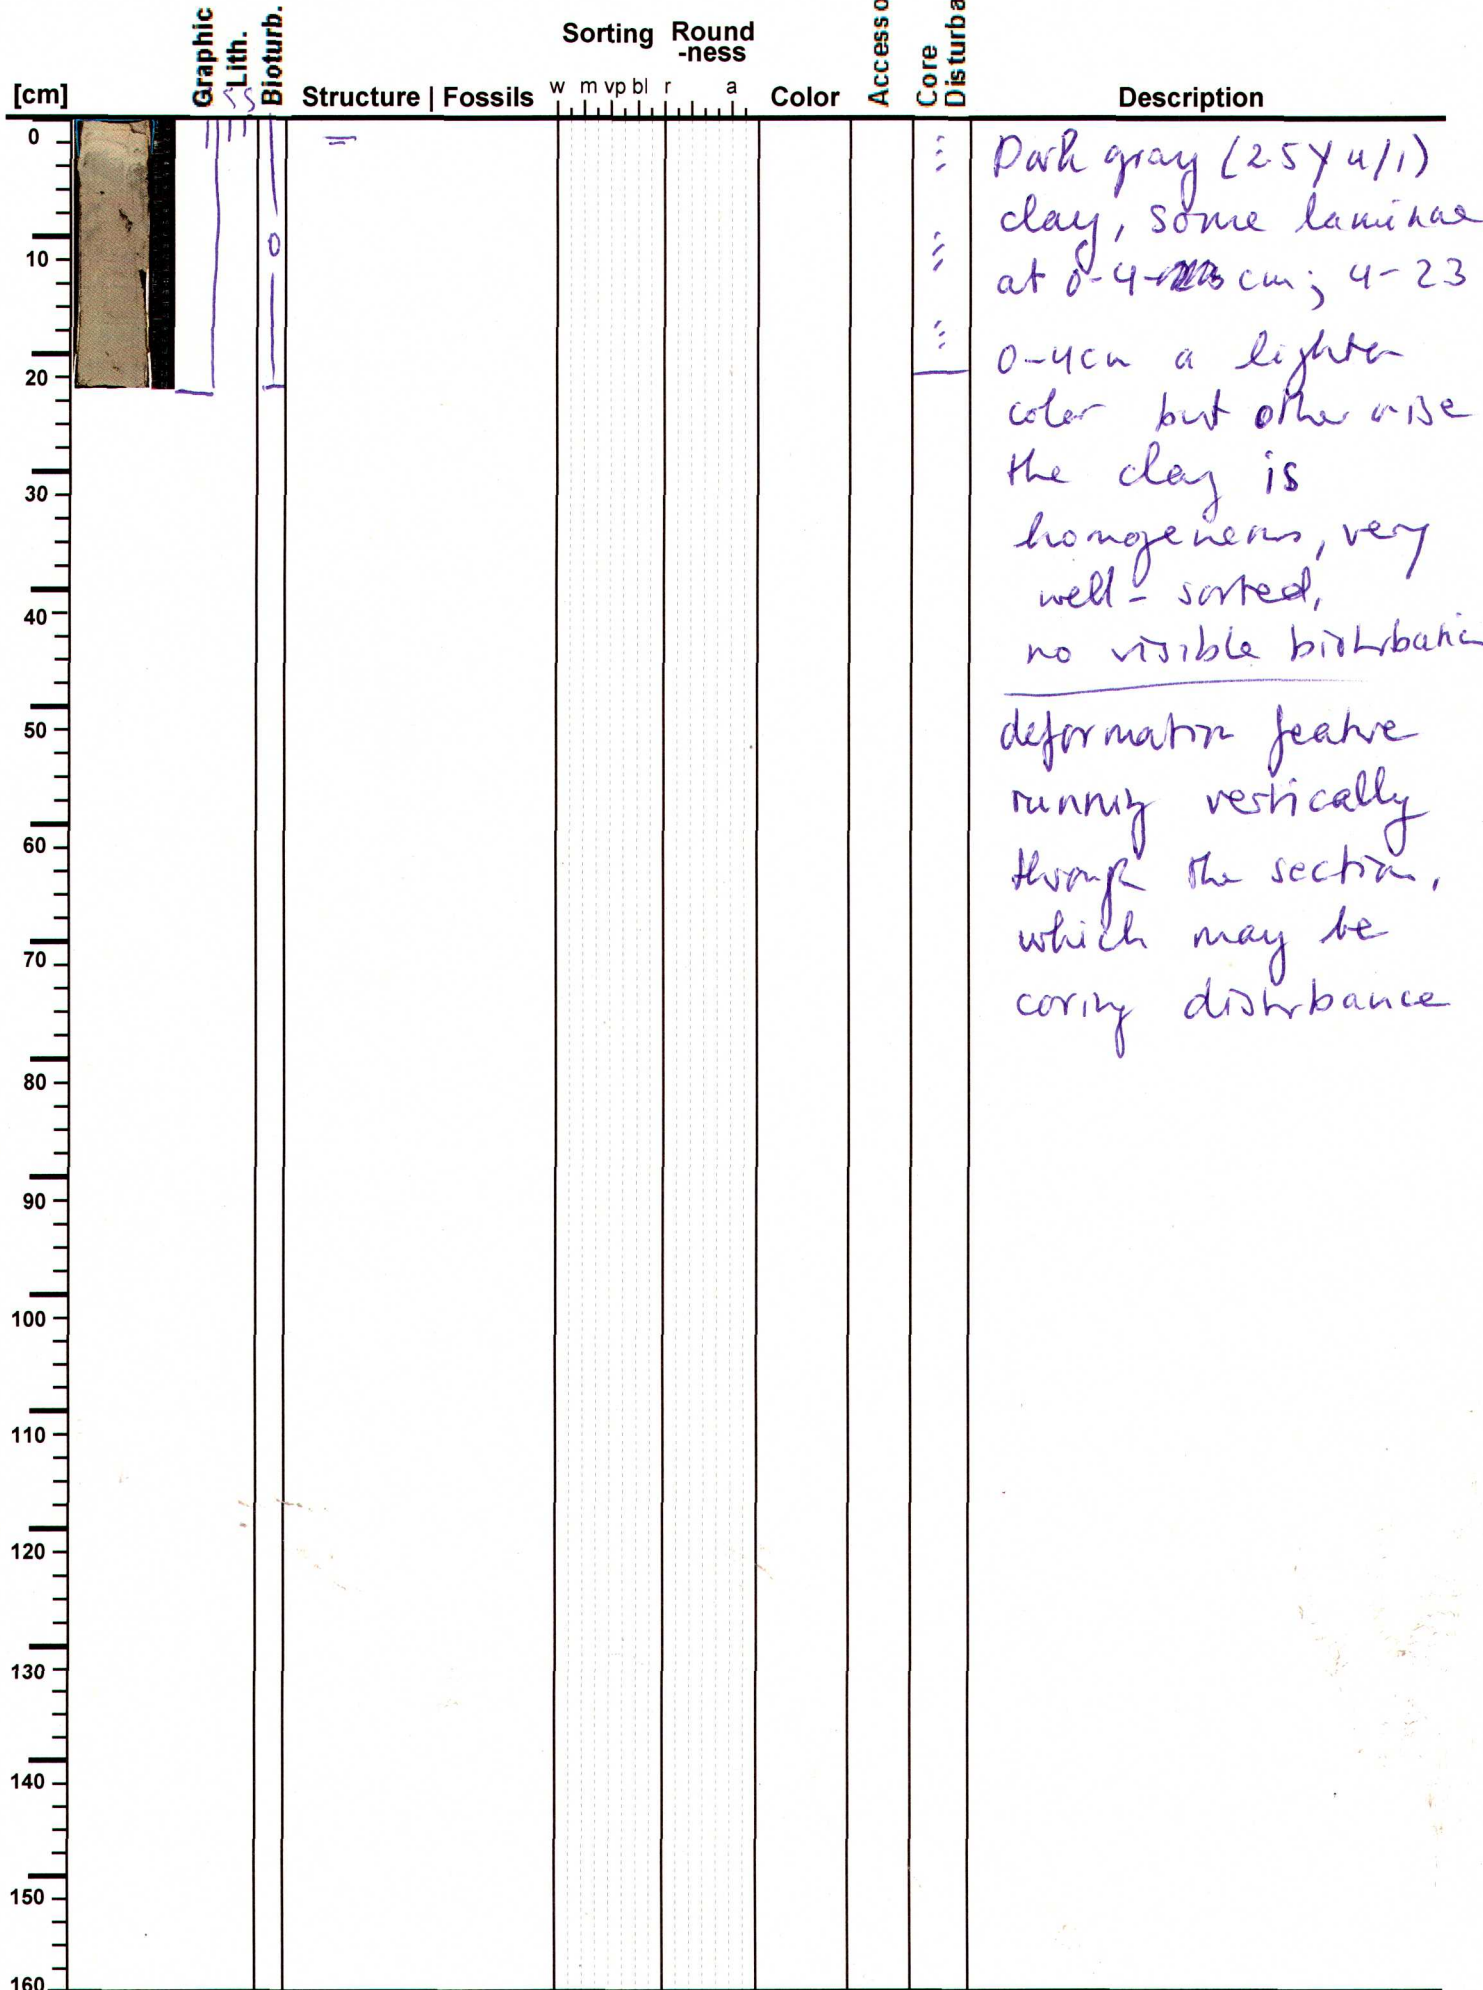 Graphic
Lith.
Bioturb.
Sorting Round
-ness
Accesso
Core
Disturba
[cm]
SS
Structure | Fossils
w m vp bl r a
Color
Description
0
10
20
30
40
50
60
70
80
90
100
110
120
130
140
150
160
0
Dark gray (2.5Y 4/1)
clay, some laminae
at 0-4 cm; 4-23
0-4cm a lighter
color but otherwise
the clay is
homogeneous, very
well-sorted,
no visible bioturbation
deformation feature
running vertically
through the section,
which may be
coring disturbance